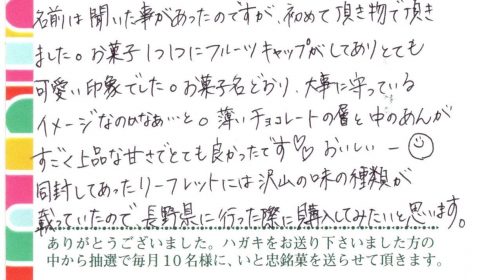 名前は聞いた事があったのですが、初めて頂き物で頂き
ました。お菓子1つ1つにフルーツキャップがしてありとても
可愛い印象でした。お菓子名どおり、大事に守っている
イメージなのかなぁ…と。薄いチョコレートの層と中のあんが
すごく上品な甘さでとても良かったです♡♡ おいしいー☺
同封してあったリーフレットには沢山の味の種類が
載っていたので、長野県に行った際に購入してみたいと思います。
ありがとうございました。ハガキをお送り下さいました方の
中から抽選で毎月10名様に、いと忠銘菓を送らせて頂きます。